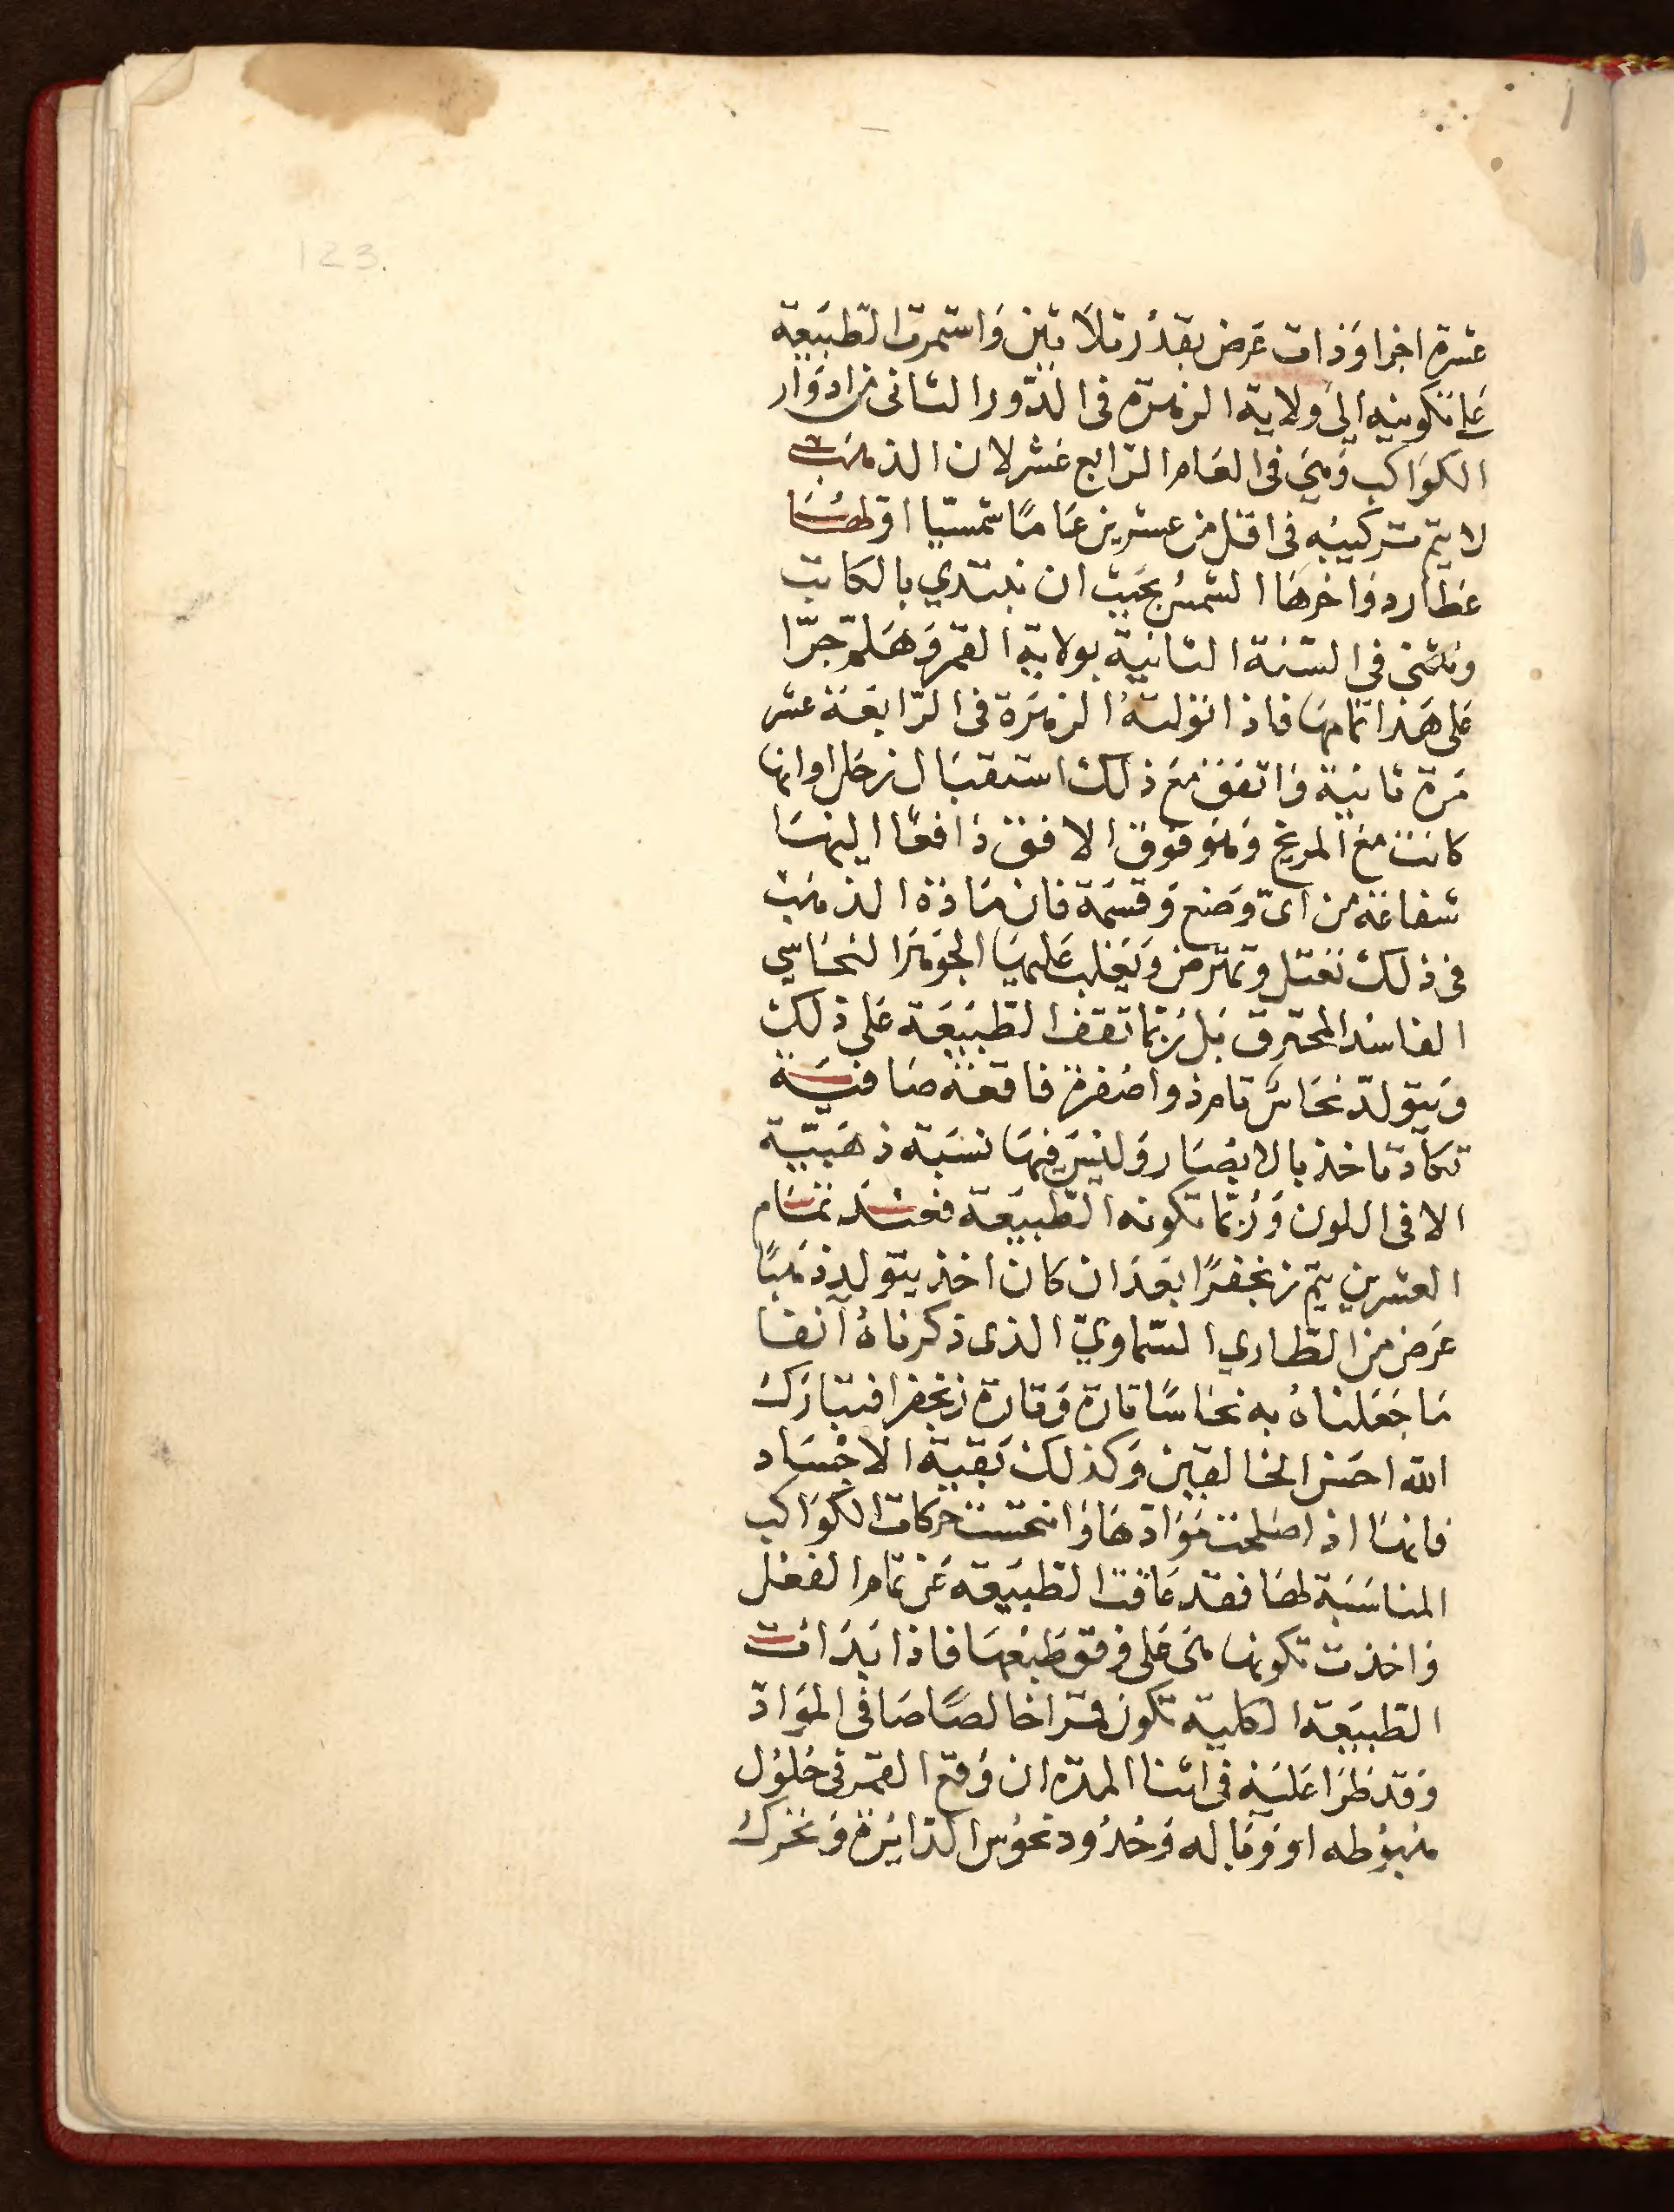 123.
عشرة اجزا وذات عرض بقدر ثلاثين واستمرت الطبيعة
على تكوينه الى ولاية الزهرة فى الدور الثانى من ادوار
الكواكب وهي فى العام الرابع عشر لان الذهب
لا يتم تركيبه فى اقل من عشرين عاما شمسيا اولها
عطارد واخرها الشمس بحيث ان نبتدي بالكاتب
ونثنى فى السنة الثانية بولاية القمر وهلم جرّا
على هذا تمامها فاذا تولته الزهرة فى الرابعة عشر
مرة ثانية واتفق مع ذلك استقبال زحل او انها
كانت مع المريخ وهو فوق الافق دافعا اليها
شعاعه من اىّ وضع وقسمة فان مادة الذهب
فى ذلك تعتل وتمترض ويغلب عليها الجوهر النحاسي
الفاسد المحترق بل ربّما تقف الطبيعة على ذلك
ويتولّد نحاس تام ذو اصفرة فاقعة صافية
تكاد تاخذ بالابصار وليس فيها نسبة ذهبيّة
الا فى اللون وربّما تكونه الطبيعة فعند تمام
العشرين يتم زنجفرًا بعد ان كان اخذ يتولد ذهبًا
عرض من الطاري السّماويّ الذى ذكرناه آنفا
ما جعلناه به نحاسًا تارة وتارة زنجفرا فتبارك
الله احسن الخالقين وكذلك بقية الاجساد
فانها اذا صلحت موادها وانتحست حركات الكواكب
المناسبة لها فقد عاقت الطبيعة عن تمام الفعل
واخذت تكونها هى على وفق طبعها فاذا بدات
الطبيعة الكلية تكون قمرا خالصًا صافى المواد
وقد طرا عليه فى اثنا المدّة ان وقع القمر فى حلول
هبوطه او وباله وحدود نحوس الدايرة وتحرك